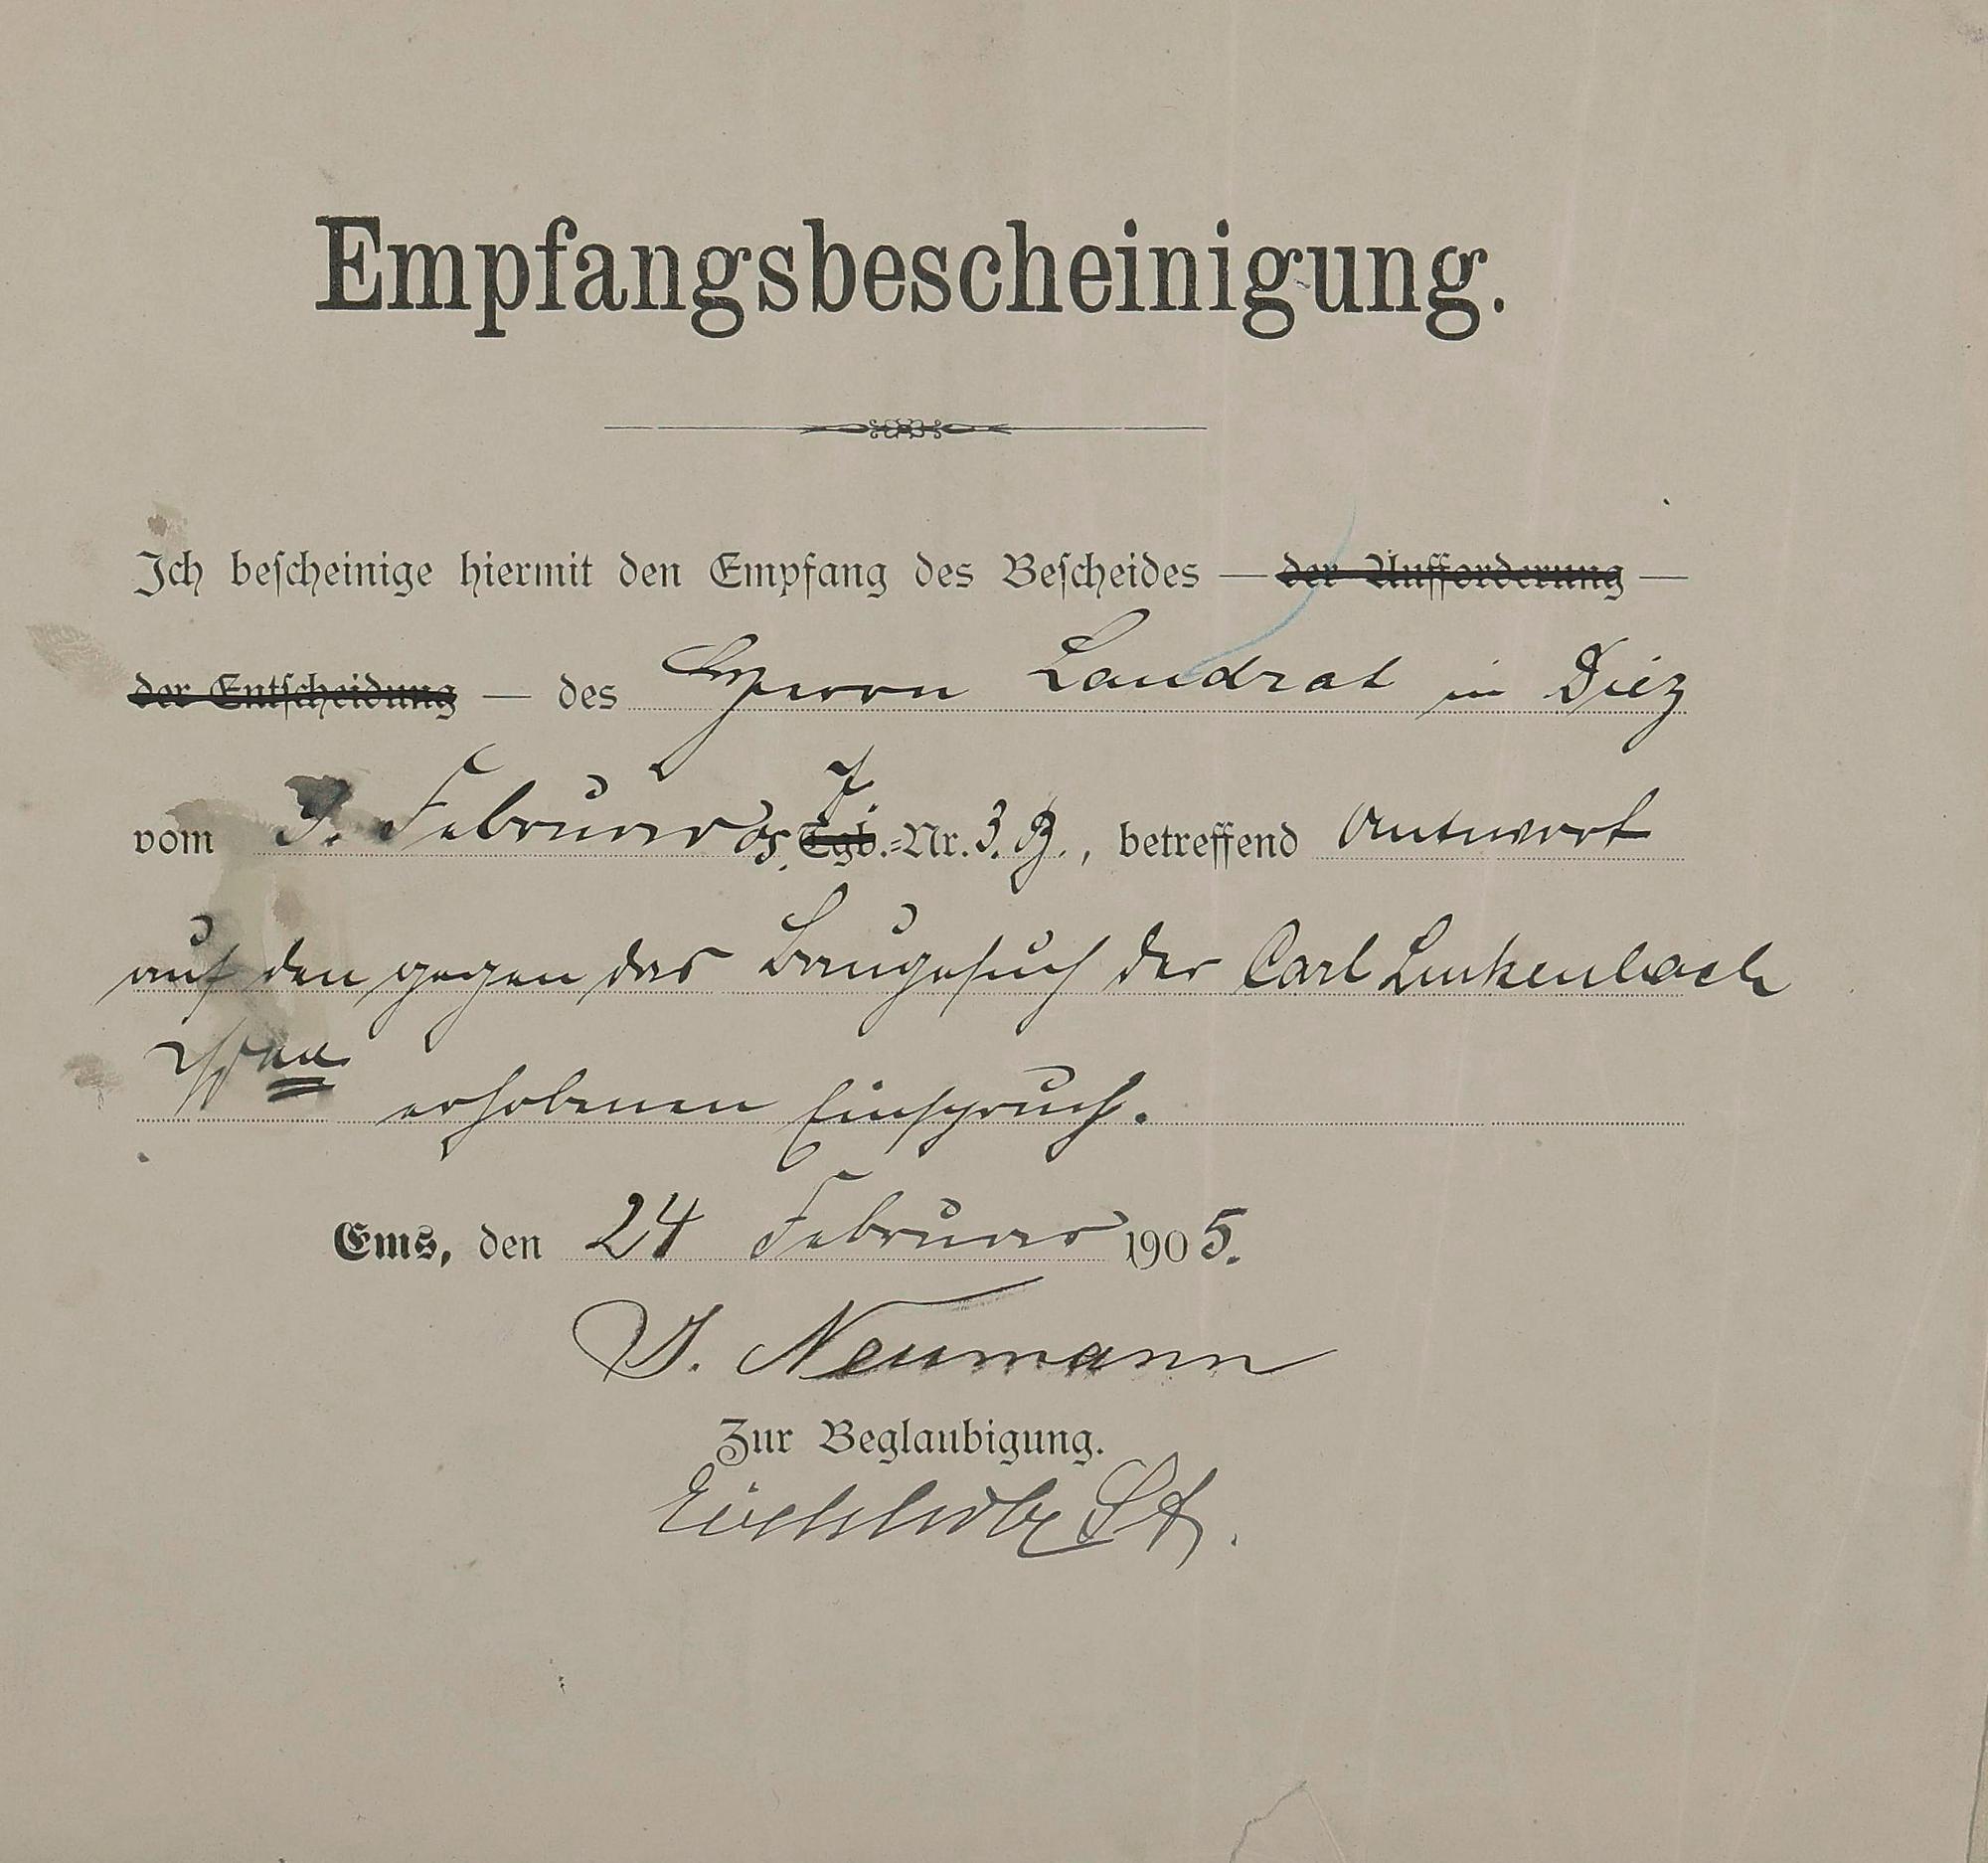 Empfangsbescheinigung.
Ich bescheinige hiermit den Empfang des Bescheides — der Aufforderung —
der Entscheidung — des Herrn Landrat in Diez
vom Februar ds. Tgb.-Nr. 3. B., betreffend Antwort
auf den gegen das Baugesuch der Carl Linkenbach
erhobenen Einspruch.
Ems, den 24 Februar 1905.
J. Neumann
Zur Beglaubigung.